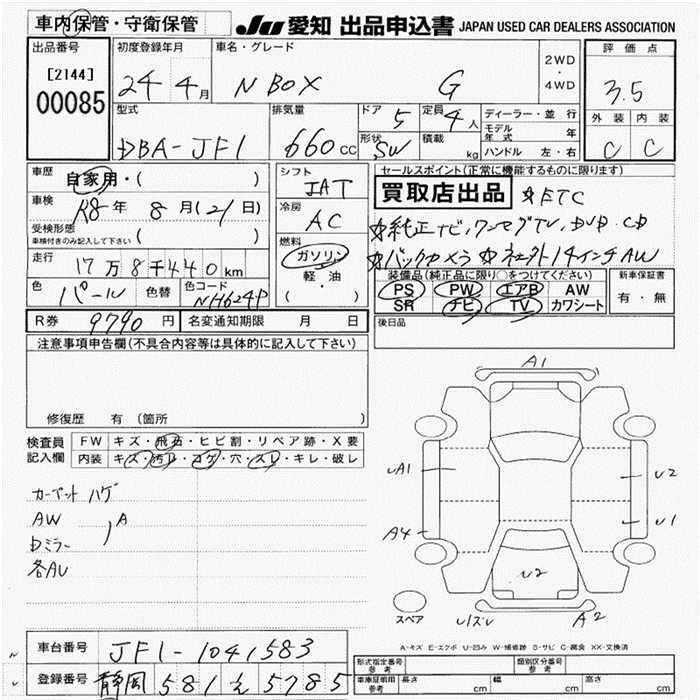 車内保管・守衛保管
JU 愛知 出品申込書 JAPAN USED CAR DEALERS ASSOCIATION
出品番号
[2144]
00085
初度登録年月
24年 4月
車名・グレード
N BOX G
2WD
・
4WD
評価点
3.5
外装 内装
C C
型式
DBA-JF1
排気量
660 CC
ドア 5
定員 4人
形状 SW
積載 kg
ディーラー・並行
モデル年式 年
ハンドル 左・右
車歴 自家用・( )
車検 R8年 8月(21日)
受検形態
車検付きのみ記入して下さい ( )
走行 17万8千440km
色 パール 色替 色コード NH624P
シフト
IAT
冷房
AC
燃料
ガソリン
軽・油
( )
セールスポイント(正常に機能するものに限ります)
買取店出品 ☆ETC
☆純正ナビ,ワンセグTV, DVD・CD
☆バックカメラ ☆社外14インチAW
装備品(純正品に限り○をつけてください)
PS PW エアB AW
SR ナビ TV カワシート
新車保証書
有・無
R券 9790円 名変通知期限 月 日
後日品
注意事項申告欄(不具合内容等は具体的に記入して下さい)
修復歴 有 (箇所 )
検査員記入欄
FW キズ・飛石・ヒビ割・リペア跡・X要
内装 キズ・汚れ・コゲ・穴・スレ・キレ・破レ
カーペット ハゲ
AW
Dミラー
A
各AU
A1
UA1
U2
U1
A4
U2
スペア
U1ズレ
A2
A-キズ E-エクボ U-凹み W-補修跡 S-サビ C-腐食 XX-交換済
車台番号 JF1-1041583
登録番号 静岡 581 え 5785
形式指定番号 参考
類別区分番号 参考
車庫証明用 参考 長さ cm 幅 cm 高さ cm